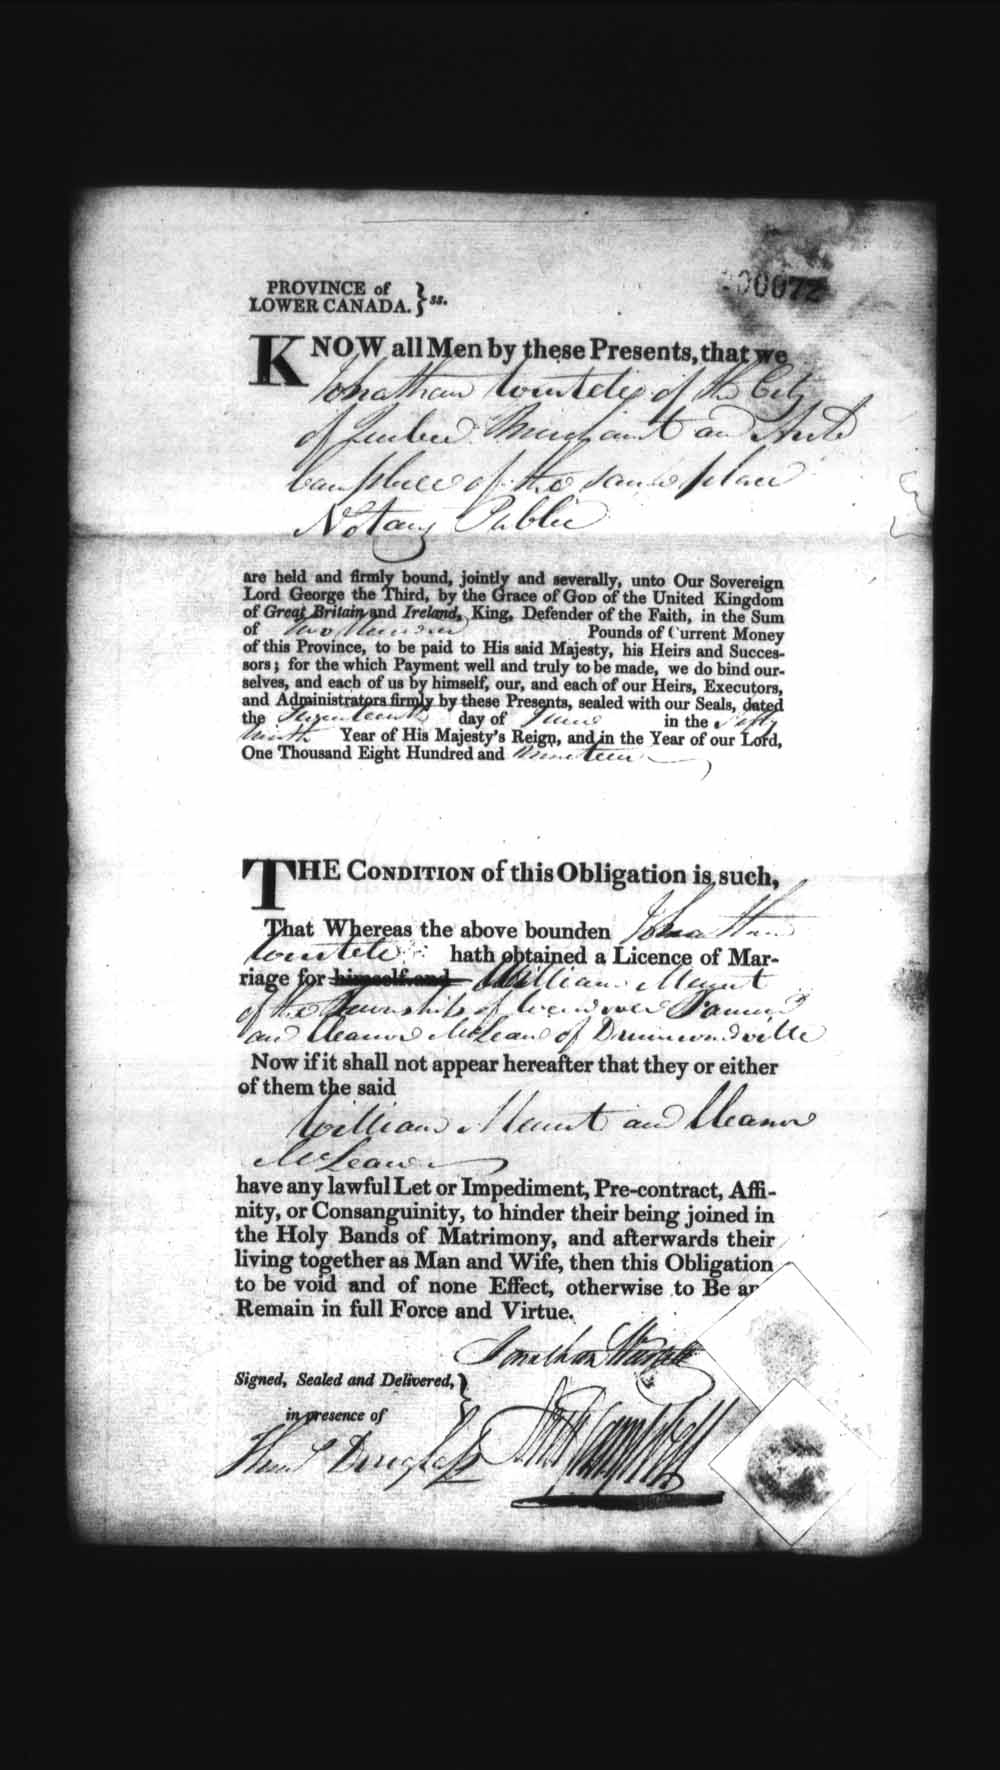 00072
PROVINCE of
LOWER CANADA. } ss.
KNOW all Men by these Presents, that we
Jonathan Wurtele of the City
of Quebec Merchant and Archd
Campbell of the same place
Notary Public
are held and firmly bound, jointly and severally, unto Our Sovereign
Lord George the Third, by the Grace of GOD of the United Kingdom
of Great Britain and Ireland, King, Defender of the Faith, in the Sum
of Two Hundred Pounds of Current Money
of this Province, to be paid to His said Majesty, his Heirs and Succes-
sors; for the which Payment well and truly to be made, we do bind our-
selves, and each of us by himself, our, and each of our Heirs, Executors,
and Administrators firmly by these Presents, sealed with our Seals, dated
the Seventeenth day of June in the Fifty
ninth Year of His Majesty's Reign, and in the Year of our Lord,
One Thousand Eight Hundred and nineteen
THE CONDITION of this Obligation is such,
That Whereas the above bounden Jonathan
Wurtele hath obtained a Licence of Mar-
riage for himself and William Mount
of the Township of Wendover
and Eleanor McLean of Drummondville
Now if it shall not appear hereafter that they or either
of them the said
William Mount and Eleanor
McLean
have any lawful Let or Impediment, Pre-contract, Affi-
nity, or Consanguinity, to hinder their being joined in
the Holy Bands of Matrimony, and afterwards their
living together as Man and Wife, then this Obligation
to be void and of none Effect, otherwise to Be an
Remain in full Force and Virtue.
Jonathan Wurtele
Signed, Sealed and Delivered,
in presence of
Archd Campbell
Douglass